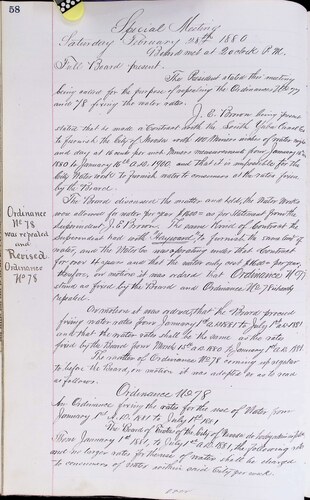 58
Special Meeting
Saturday February 28th 1880
Board met at 2 o'clock P.M.
Full Board present.
The President stated this meeting
being called for the purpose of repealing the Ordinances No 77
and 78 fixing the water rates.
J. E. Brown being present
stated that he made a Contract with the South Yuba Canal Co
to furnish the City of Nevada with 100 Miners inches of water night
and day at 15 cents per inch Miners measurement from January 15th
1880 to January 15th A.D. 1910 and that it is impossible for the
City Water Works to furnish water to consumers at the rates fixed
by the Board.
The Board discussed the matter and held, the Water Works
were allowed for water per year $
as per Statement from the
Superintendent, J. E. Brown. The same kind of Contract the
Superintendent had with Hayward to furnish the same amt of
water, and the Water Co was operating under that Contract
for over 14 years and that the water only cost $
a per year,
therefore, on motion it was ordered that Ordinance No 77
stand as fixed by the Board and Ordinance No 78 is hereby
repealed.
On motion it was ordered, that the Board proceed
fixing water rates from January 1st A.D. 1881 to July 1st A.D. 1881
and that the water rates shall be the same as the rates
fixed by the Board from March 15th A.D. 1880 to January 1st A.D. 1881.
The matter of Ordinance No 78 coming up regular
to before the Board, on motion it was adopted so as to read
as follows:
Ordinance No 78
An Ordinance fixing the rates for the use of Water from
January 1st A.D. 1881 to July 1st 1881
The Board of Trustees of the City of Nevada do
From January 1st 1881, to July 1st A.D. 1881, the following rates
and no larger rates for the use of water shall be charged
to consumers of water within said City per week.
Ordinance
No 78
was repealed
and
Revised
Ordinance
No 78